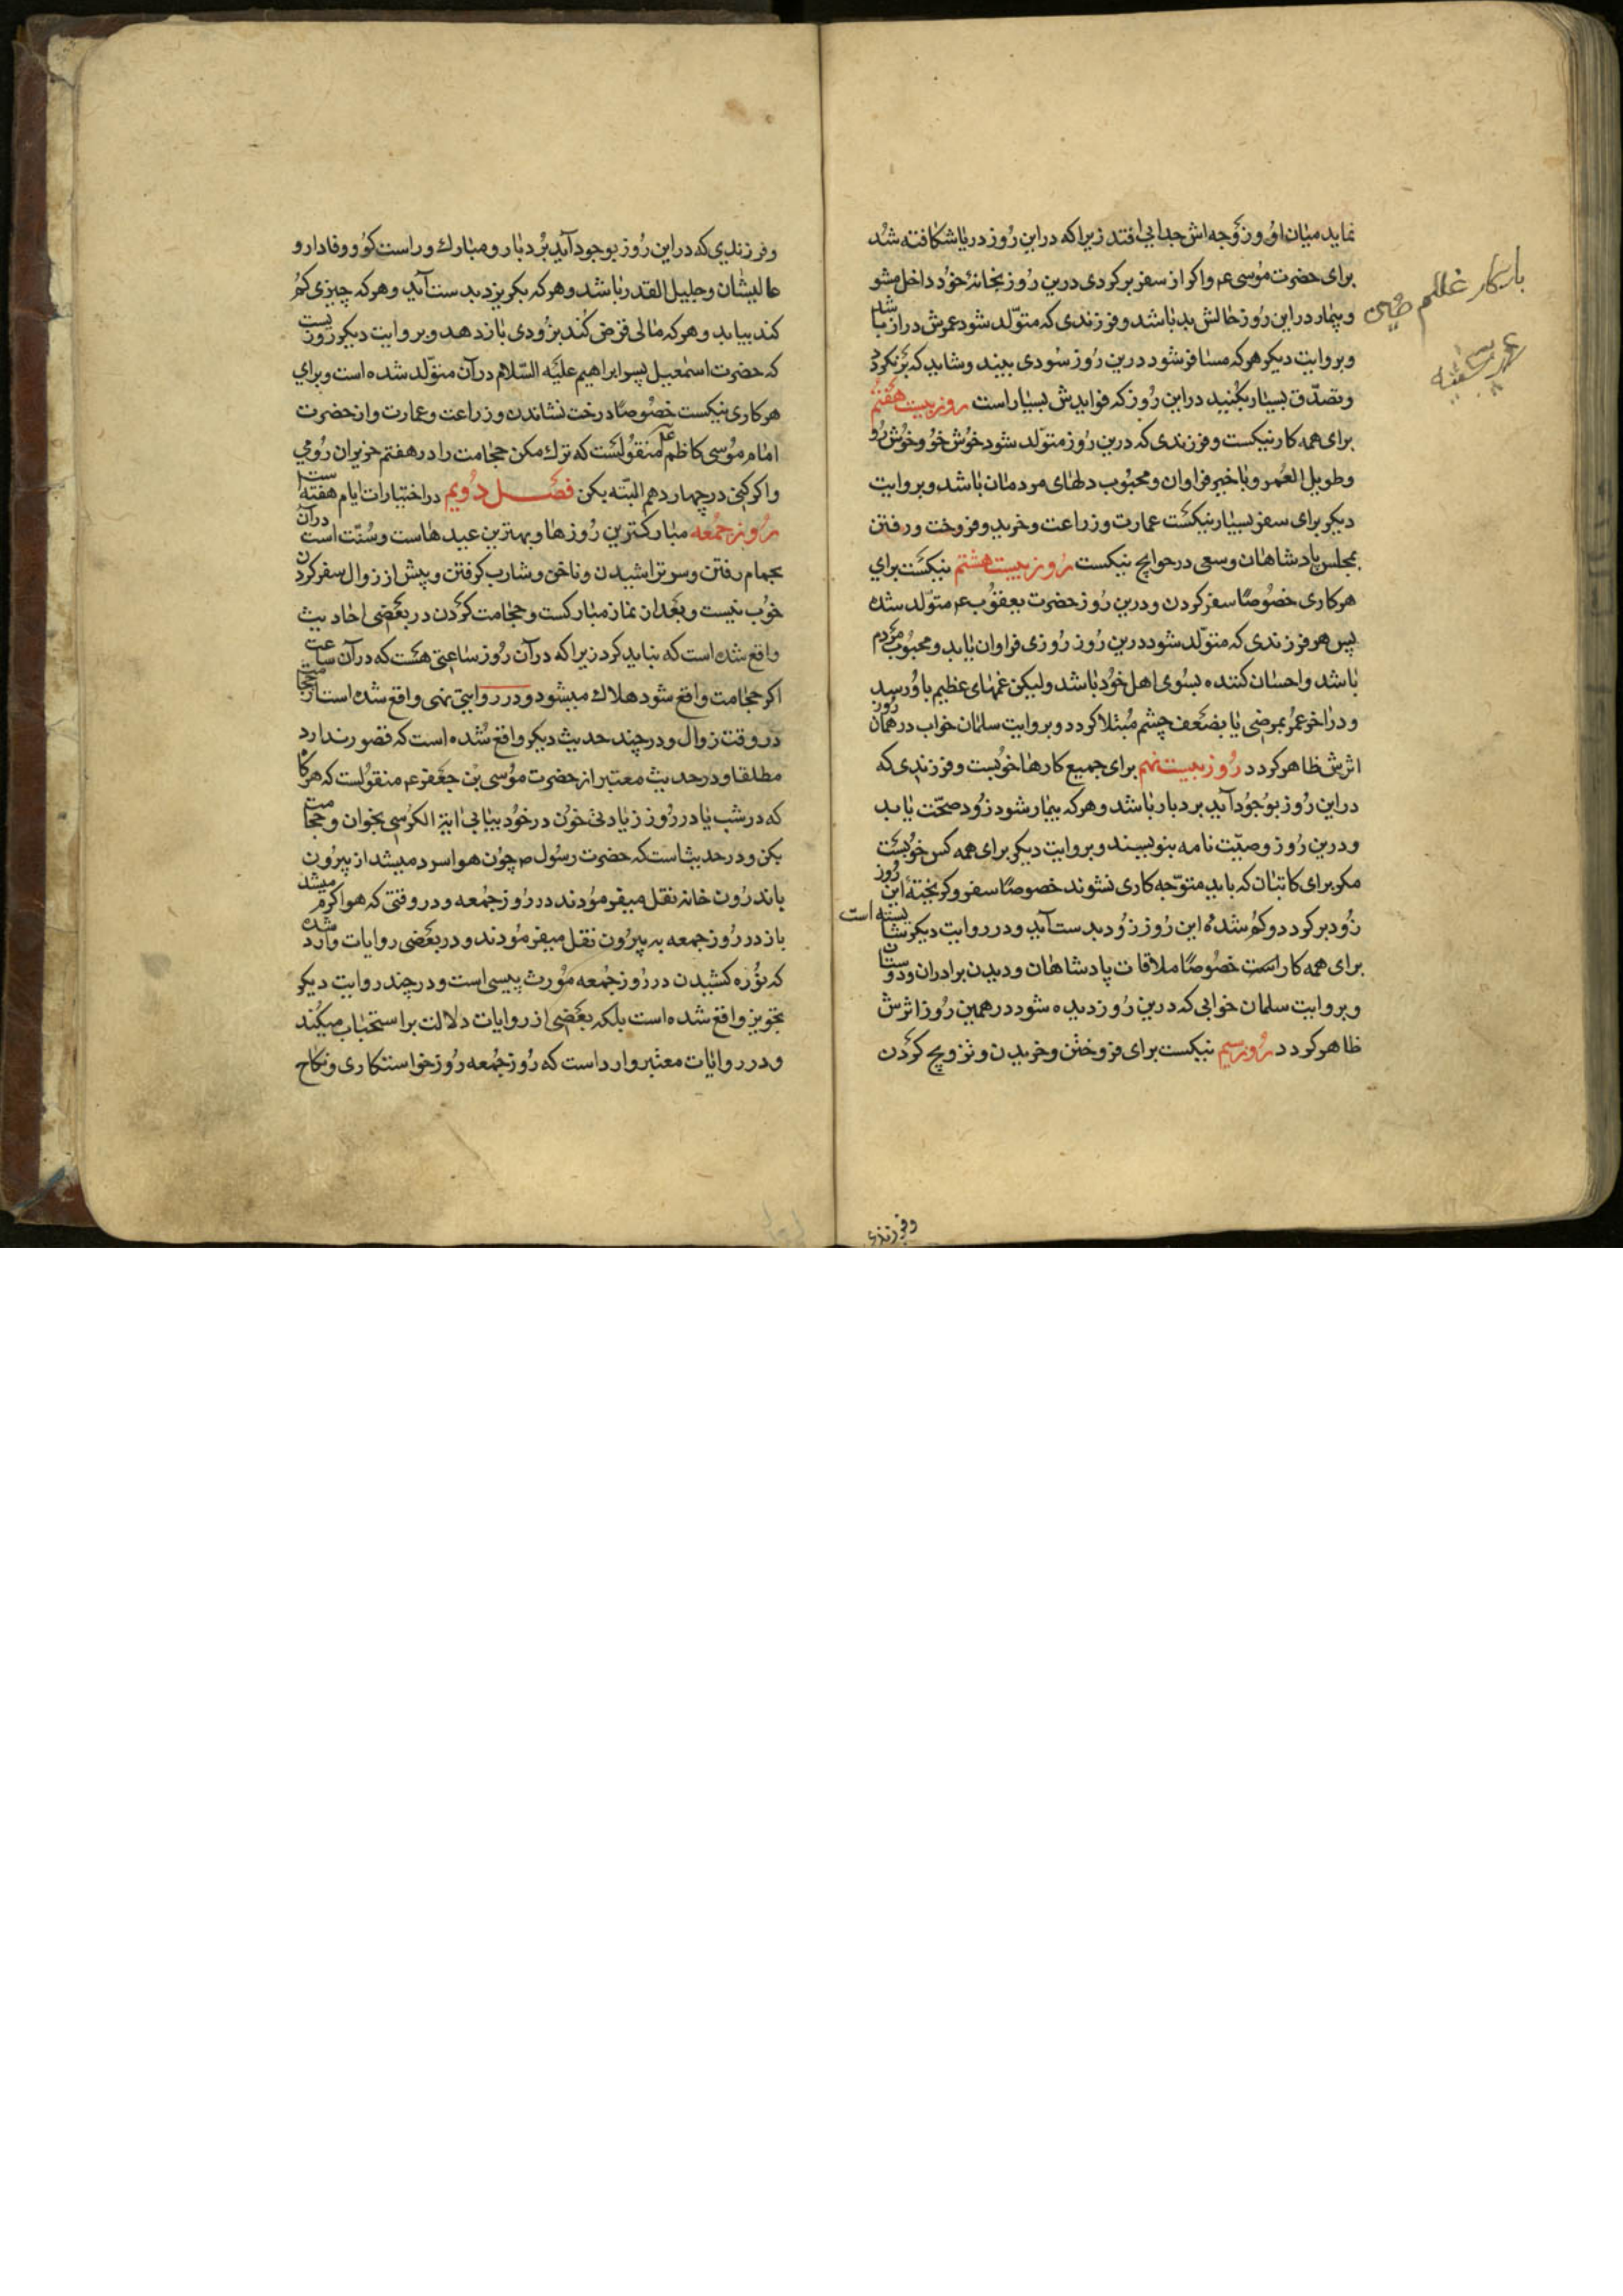 نماید میان او و زوجه اش جدایی افتد زیرا که در این روز دریا شکافته شد
برای حضرت موسی ع و اکر از سفر برکردی درین روز بخانهٔ خود داخل مشو
و بیمار در این روز حالش بد باشد و فرزندی که متولد شود عمرش دراز باشد
و بروایت دیکر هرکه مسافر شود درین روز سودی بیند و شاید که بر نکردد
و تصدّق بسیار بکنید در این روز که فوایدش بسیار است روز بیست هفتم
برای همه کار نیکست و فرزندی که درین روز متولّد شود خوش خو و خوش رو
و طویل العمر و با خیر فراوان و محبوب دلهای مردمان باشد و بروایت
دیکر برای سفر بسیار نیکست عمارت و زراعت و خرید و فروخت و رفتن
بمجلس پادشاهان و سعی در حوایج نیکست روز بیست هشتم نیکست برای
هر کاری خصوصًا سفر کردن و درین روز حضرت یعقوب ع متولّد شد
پس هر فرزندی که متولد شود درین روز روزی فراوان یابد و محبوب مردم
باشد و احسان کننده بسوی اهل خود باشد ولیکن غمهای عظیم باو رسد
و در اخر عمر بمرضی یا بضعف چشم مبتلا کردد و بروایت سلمان خواب در همان روز
اثرش ظاهر کردد روز بیست نهم برای جمیع کارها خوبست و فرزندی که
در این روز بوجود آید بردبار باشد و هرکه بیمار شود زود صحّت یابد
و درین روز وصیّت نامه بنویسند و بروایت دیکر برای همه کس خوبست
مکر برای کاتبان که باید متوّجه کاری نشوند خصوصًا سفر و کریختهٔ این روز
زود بر کردد و کم شدهٔ این روز زود بدست آید و در روایت دیکر شایسته است
برای همه کار است خصوصًا ملاقات پادشاهان و دیدن برادران و دوستان
و بروایت سلمان خوابی که درین روز دیده شود در همین روز اثرش
ظاهر کردد روز سیم نیکست برای فروختن و خریدن و تزویج کردن
و فرزندی
و فرزندی که در این روز بوجود آید بردبار و مبارك و راست کو و وفادار و
عالیشان و جلیل القدر باشد و هرکه بکریزد بدست آید و هرکه چیزی کم
کند بیابد و هرکه مالی قرض کند بزودی باز دهد و بروایت دیکر روزیست
که حضرت اسمعیل پسر ابراهیم علیه السّلام در آن متولّد شده است و برای
هر کاری نیکست خصوصًا درخت نشاندن و زراعت و عمارت و از حضرت
امام موسی کاظم ع منقولست که ترك مکن حجامت را در هفتم حزیران رومی
و اکر کنی در چهاردهم البتّه بکن فصـل دویم در اختیارات ایام هفته است
روز جمعه مبارکترین روزها و بهترین عیدهاست و سنّت است در آن
بحمام رفتن و سر تراشیدن و ناخن و شارب کرفتن و پیش از زوال سفر کردن
خوب نیست و بعد از نماز مبارکست و حجامت کردن در بعضی احادیث
واقع شده است که نباید کرد زیرا که در آن روز ساعتی هست که در آن ساعت
اکر حجامت واقع شود هلاك میشود و در روایتی نهی واقع شده است از حجامت
در وقت زوال و در چند حدیث دیکر واقع شده است که قصور ندارد
مطلقا و در حدیث معتبر از حضرت موسی بن جعفر ع منقولست که هرکاه
که در شب یا در روز زیادتی خون در خود بیابی ایة الکرسی بخوان و حجامت
بکن و در حدیث است که حضرت رسول ص چون هوا سرد میشد از بیرون
باندرون خانه نقل میفرمودند در روز جمعه و در وقتی که هوا کرم میشد
باز در روز جمعه به بیرون نقل میفرمودند و در بعضی روایات وارد شده
که نوره کشیدن در روز جمعه مورث پیسی است و در چند روایت دیکر
تجویز واقع شده است بلکه بعضی از روایات دلالت بر استحباب میکند
و در روایات معتبر وارد است که روز جمعه روز خواستکاری و نکاح